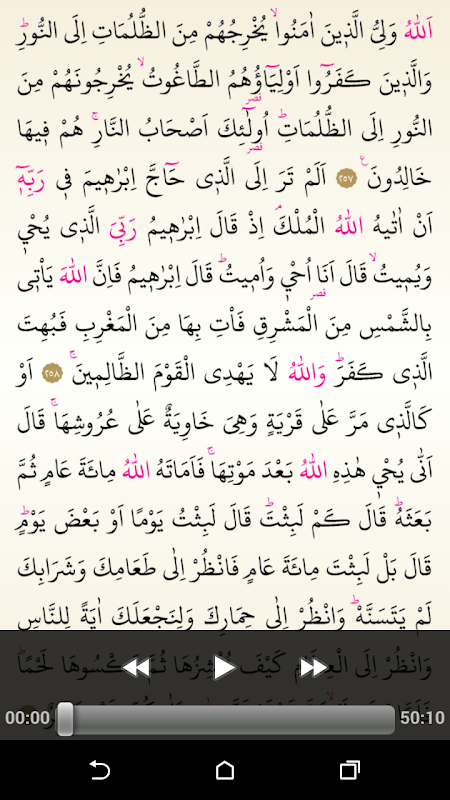 اَللّٰهُ وَلِيُّ الَّذ۪ينَ اٰمَنُواۙ يُخْرِجُهُمْ مِنَ الظُّلُمَاتِ اِلَى النُّورِۜ
وَالَّذ۪ينَ كَفَرُٓوا اَوْلِيَٓاؤُ۬هُمُ الطَّاغُوتُۙ يُخْرِجُونَهُمْ مِنَ
النُّورِ اِلَى الظُّلُمَاتِۜ اُو۬لٰٓئِكَ اَصْحَابُ النَّارِۚ هُمْ ف۪يهَا
خَالِدُونَ۟ ﴿٢٥٧﴾ اَلَمْ تَرَ اِلَى الَّذ۪ي حَٓاجَّ اِبْرٰه۪يمَ ف۪ي رَبِّه۪ٓ
اَنْ اٰتٰيهُ اللّٰهُ الْمُلْكَۢ اِذْ قَالَ اِبْرٰه۪يمُ رَبِّيَ الَّذ۪ي يُحْي۪
وَيُم۪يتُۙ قَالَ اَنَا۬ اُحْي۪ وَاُم۪يتُۜ قَالَ اِبْرٰه۪يمُ فَاِنَّ اللّٰهَ يَأْت۪ي
بِالشَّمْسِ مِنَ الْمَشْرِقِ فَأْتِ بِهَا مِنَ الْمَغْرِبِ فَبُهِتَ
الَّذ۪ي كَفَرَۜ وَاللّٰهُ لَا يَهْدِي الْقَوْمَ الظَّالِم۪ينَۚ ﴿٢٥٨﴾ اَوْ
كَالَّذ۪ي مَرَّ عَلٰى قَرْيَةٍ وَهِيَ خَاوِيَةٌ عَلٰى عُرُوشِهَاۚ قَالَ
اَنّٰى يُحْي۪ هٰذِهِ اللّٰهُ بَعْدَ مَوْتِهَاۚ فَاَمَاتَهُ اللّٰهُ مِائَةَ عَامٍ ثُمَّ
بَعَثَهُۜ قَالَ كَمْ لَبِثْتَۜ قَالَ لَبِثْتُ يَوْمًا اَوْ بَعْضَ يَوْمٍۜ
قَالَ بَلْ لَبِثْتَ مِائَةَ عَامٍ فَانْظُرْ اِلٰى طَعَامِكَ وَشَرَابِكَ
لَمْ يَتَسَنَّهْۜ وَانْظُرْ اِلٰى حِمَارِكَ وَلِنَجْعَلَكَ اٰيَةً لِلنَّاسِ
وَانْظُرْ اِلَى الْعِظَامِ كَيْفَ نُنْشِزُهَا ثُمَّ نَكْسُوهَا لَحْمًاۜ
00:00 50:10